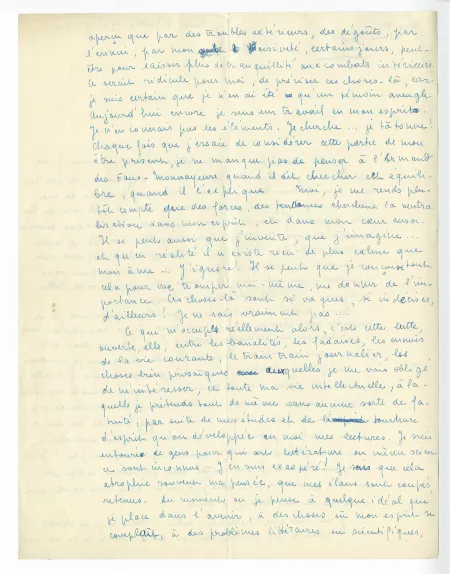 aperçu que par des troubles extérieurs, des dégoûts, par
l'ennui, par mon oisiveté, certains jours, peut-
être pour laisser plus de tranquillité aux combats intérieurs
Ce serait ridicule pour moi, de préciser ces choses-là, car
je suis certain que je n'en ai été qu'un témoin aveugle.
Aujourd'hui encore je sens un travail en mon esprit.
Je n'en connais pas les éléments. Je cherche... je tâtonne!
Chaque fois que j'essaie de considérer cette partie de mon
être présent, je ne manque pas de penser à l'Armand
des Faux-Monnayeurs quand il dit chercher cet équili-
bre, quand il l'explique. Moi, je me rends plu-
tôt compte que des forces, des tendances cherchent la neutra-
lisation dans mon esprit, et dans mon cœur aussi.
Il se peut aussi que j'invente, que j'imagine...
et qu'en réalité il n'existe rien de plus calme que
mon âme... J'ignore! Il se peut que je
cela pour me tromper moi-même, me donner de l'im-
portance. Ces choses-là sont si vagues, si indécises,
d'ailleurs! Je ne sais vraiment pas...
Ce qui m'occupe réellement alors, c'est cette lutte,
ouverte, elle, entre les banalités, les fadaises, les ennuis
de la vie courante, le train train journalier, les
choses bien prosaïques auxquelles je me vois obligé
de m'intéresser, et toute ma vie intellectuelle, à la-
quelle je prétends tout de même sans aucune sorte de fa-
tuité, par suite de mes études et de la tournure
d'esprit qu'ont développée en moi mes lectures. Je suis
entouré de gens pour qui art, littérature ou même scien-
ce sont inconnus — J'en suis exaspéré! Je sens que cela
atrophie souvent ma pensée, que mes élans sont coupés,
retenus. Au moment où je pense à quelque idéal que
je place dans l'avenir, à des choses où mon esprit se
complaît, à des problèmes littéraires ou scientifiques,